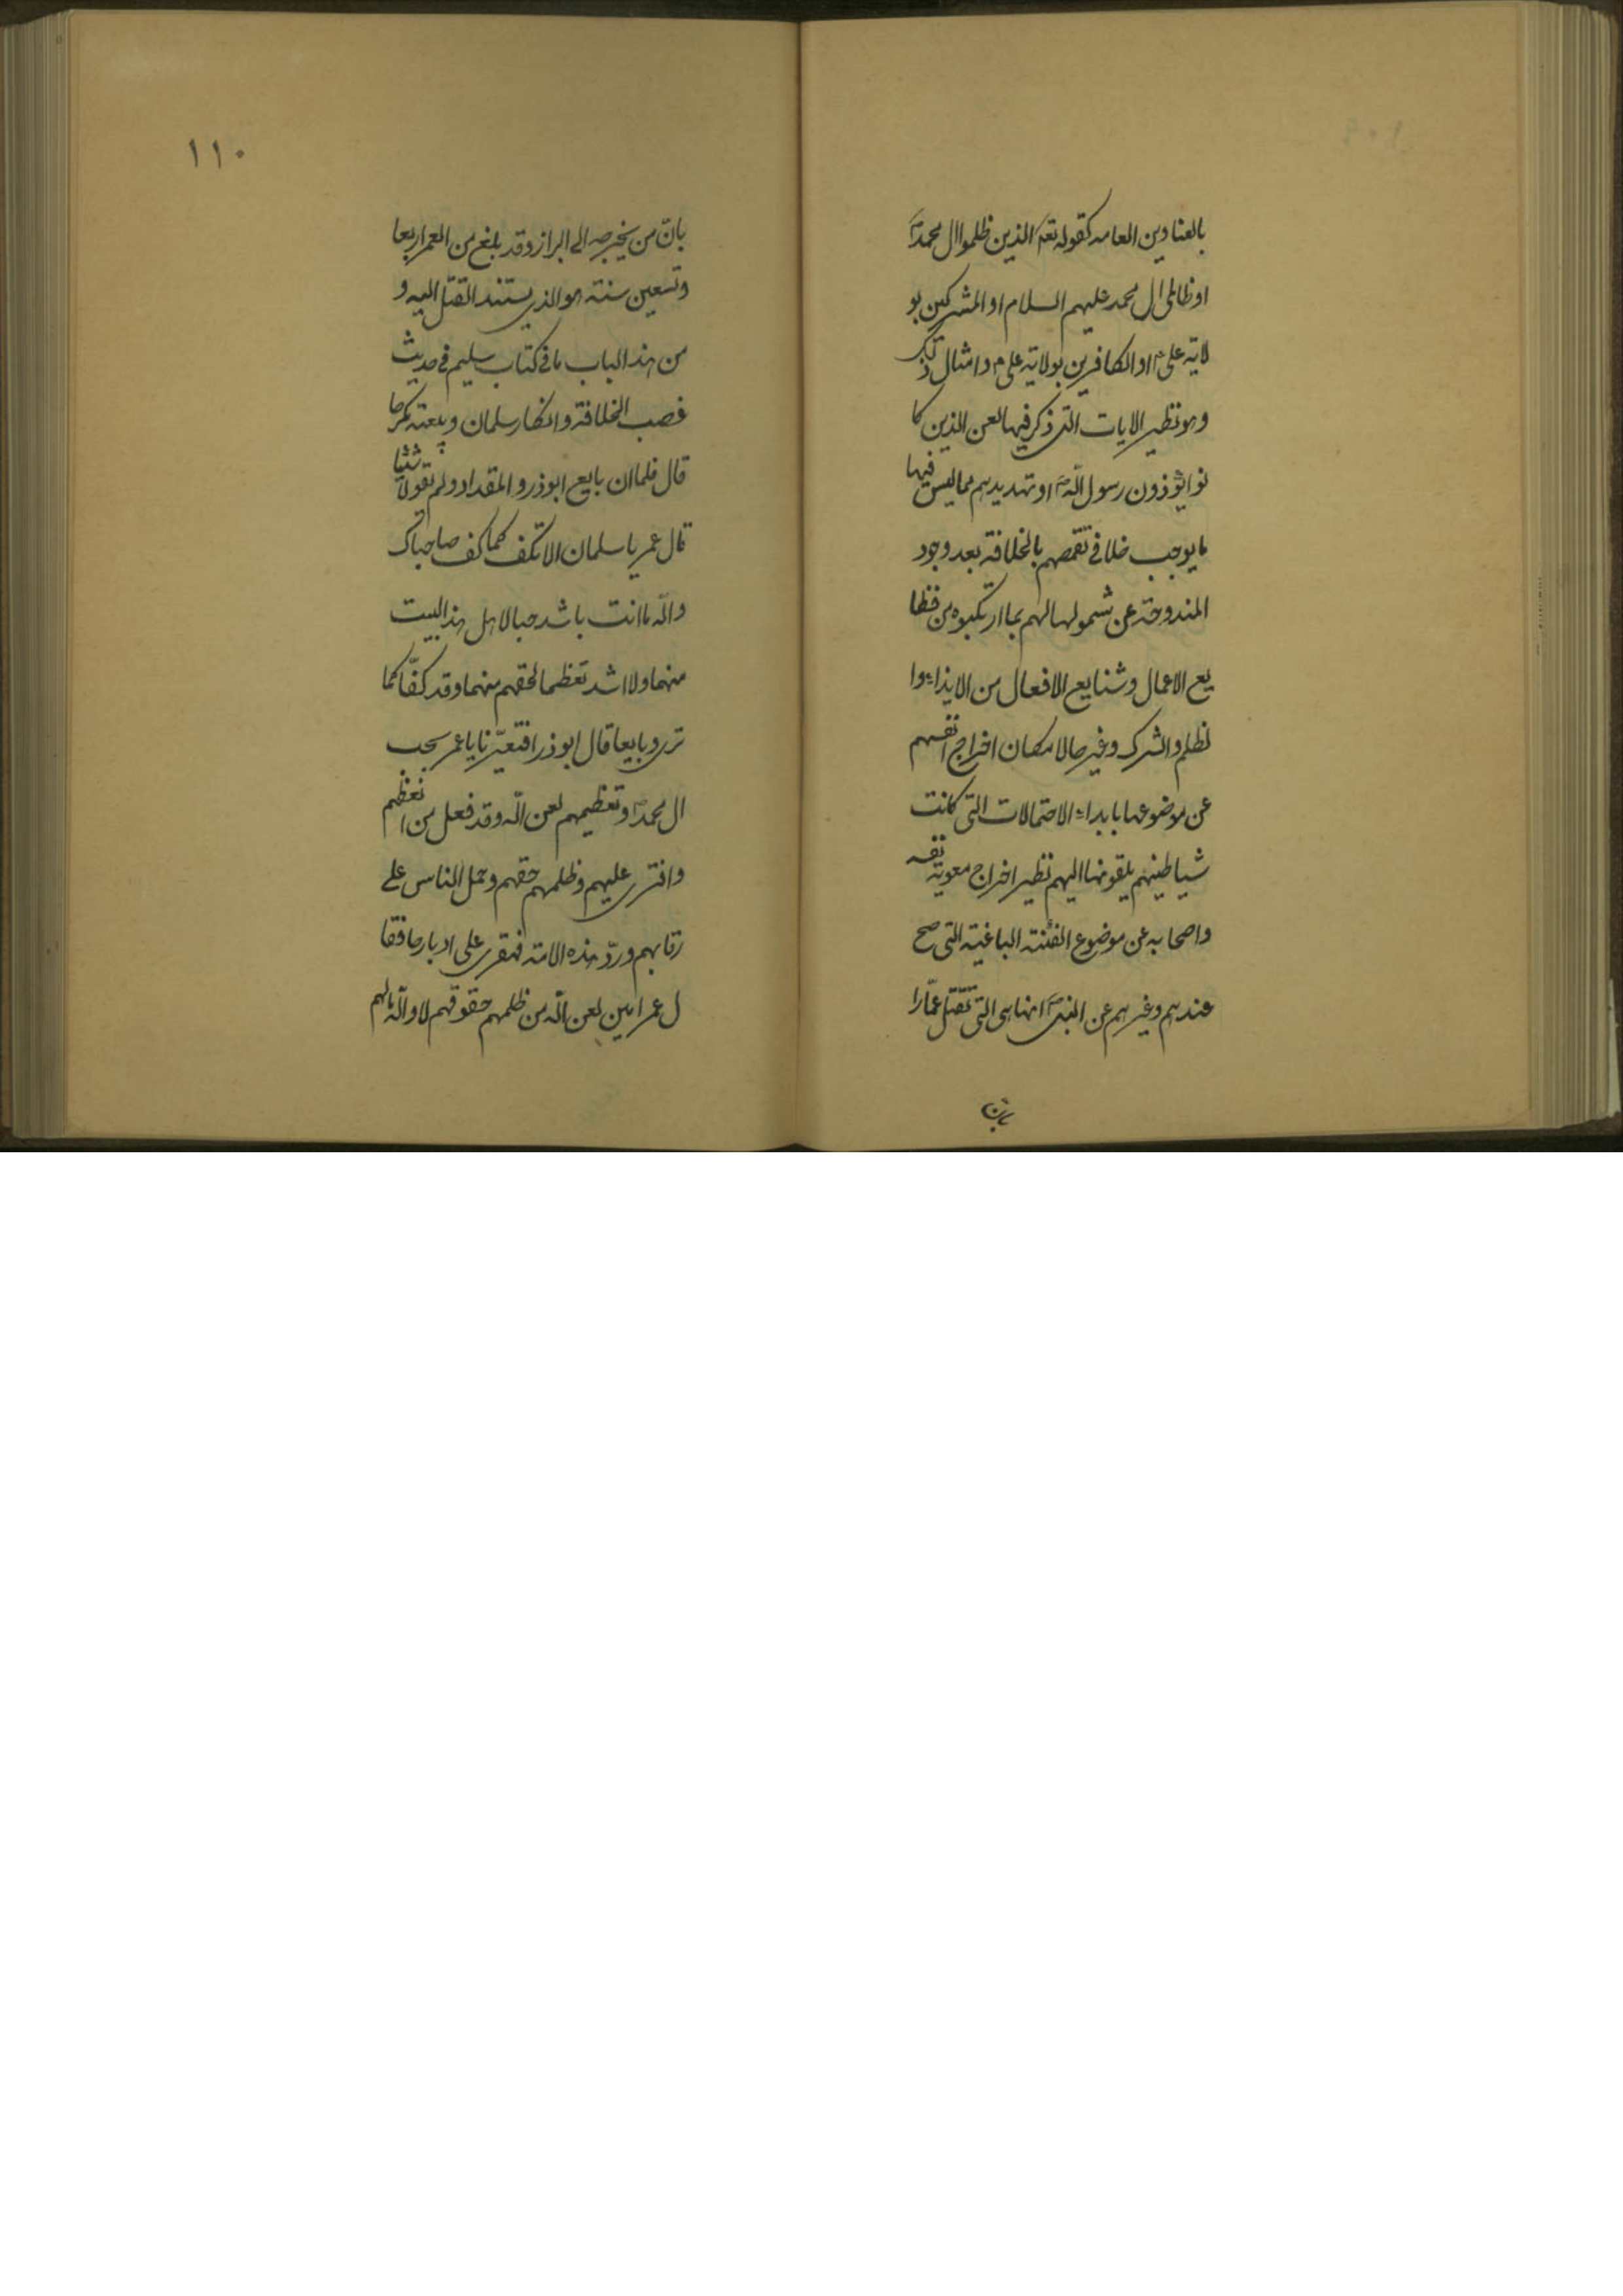 بالعناوين العامه كقوله تعه الذين ظلموا ال محمدص
او ظالمى ال محمد عليهم السلام او المشركين بو
لاية علىع او الكافرين بولاية علىع وامثال ذلك
وهو نظير الايات التى ذكر فيها لعن الذين كا
نوا يؤذون رسول اللهص او تهديدهم مما ليس فيها
ما يوجب خلافى تقمصهم بالخلافة بعد وجود
المندوحة عن شمولها لهم بما ارتكبوه من فظا
يع الاعمال وشنايع الافعال من الايذاء وا
لظلم والشرك وغيرها لامكان اخراج انفسهم
عن موضوعها بابداء الاحتمالات التى كانت
شياطينهم يلقونها اليهم نظير اخراج معوية نفسه
واصحابه عن موضوع الفئة الباغية التى صح
عندهم وغيرهم عن النبىص انها هى التى تقتل عمّارا
بان
١١٠
بانّ من يخرجه الى البراز وقد بلغ من العمر اربعا
وتسعين سنة هو الذى يستند القتل اليه و
من هذا الباب ما فى كتاب سليم فى حديث
غصب الخلافة وانكار سلمان وبيعته كرها
قال فلما ان بايع ابوذر والمقداد ولم يقولا شيئا
قال عمر يا سلمان الا تكف كما كف صاحباك
والله ما انت باشد حبا لاهل هذا البيت
منهما ولا اشد تعظما لحقهم منهما وقد كفّا كما
ترى وبايعا قال ابوذر افتعيّرنا يا عمر بحب
ال محمدص وتعظيمهم لعن الله وقد فعل من ابغضهم
وافترى عليهم وظلمهم حقهم وحمل الناس على
رقابهم وردّ هذه الامة قهقرى على ادبارها فقا
ل عمر امين لعن الله من ظلمهم حقوقهم لا والله ما لهم